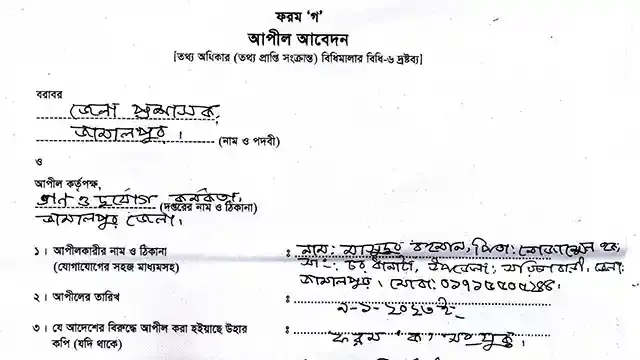 ফরম ‘গ’
আপীল আবেদন
[তথ্য অধিকার (তথ্য প্রাপ্তি সংক্রান্ত) বিধিমালার বিধি-৬ দ্রষ্টব্য]
বরাবর
জেলা প্রশাসক,
জামালপুর। (নাম ও পদবী)
ও
আপীল কর্তৃপক্ষ,
ত্রাণ ও দুর্যোগ কর্মকর্তা,
(দপ্তরের নাম ও ঠিকানা)
জামালপুর জেলা।
১। আপীলকারীর নাম ও ঠিকানা : নাম: মাসুদুর রহমান, পিতা:
(যোগাযোগের সহজ মাধ্যমসহ) উপজেলা: সরিষাবাড়ী, জেলা:
জামালপুর।
২। আপীলের তারিখ :
৩। যে আদেশের বিরুদ্ধে আপীল করা হইয়াছে উহার : ফরম ক
কপি (যদি থাকে)